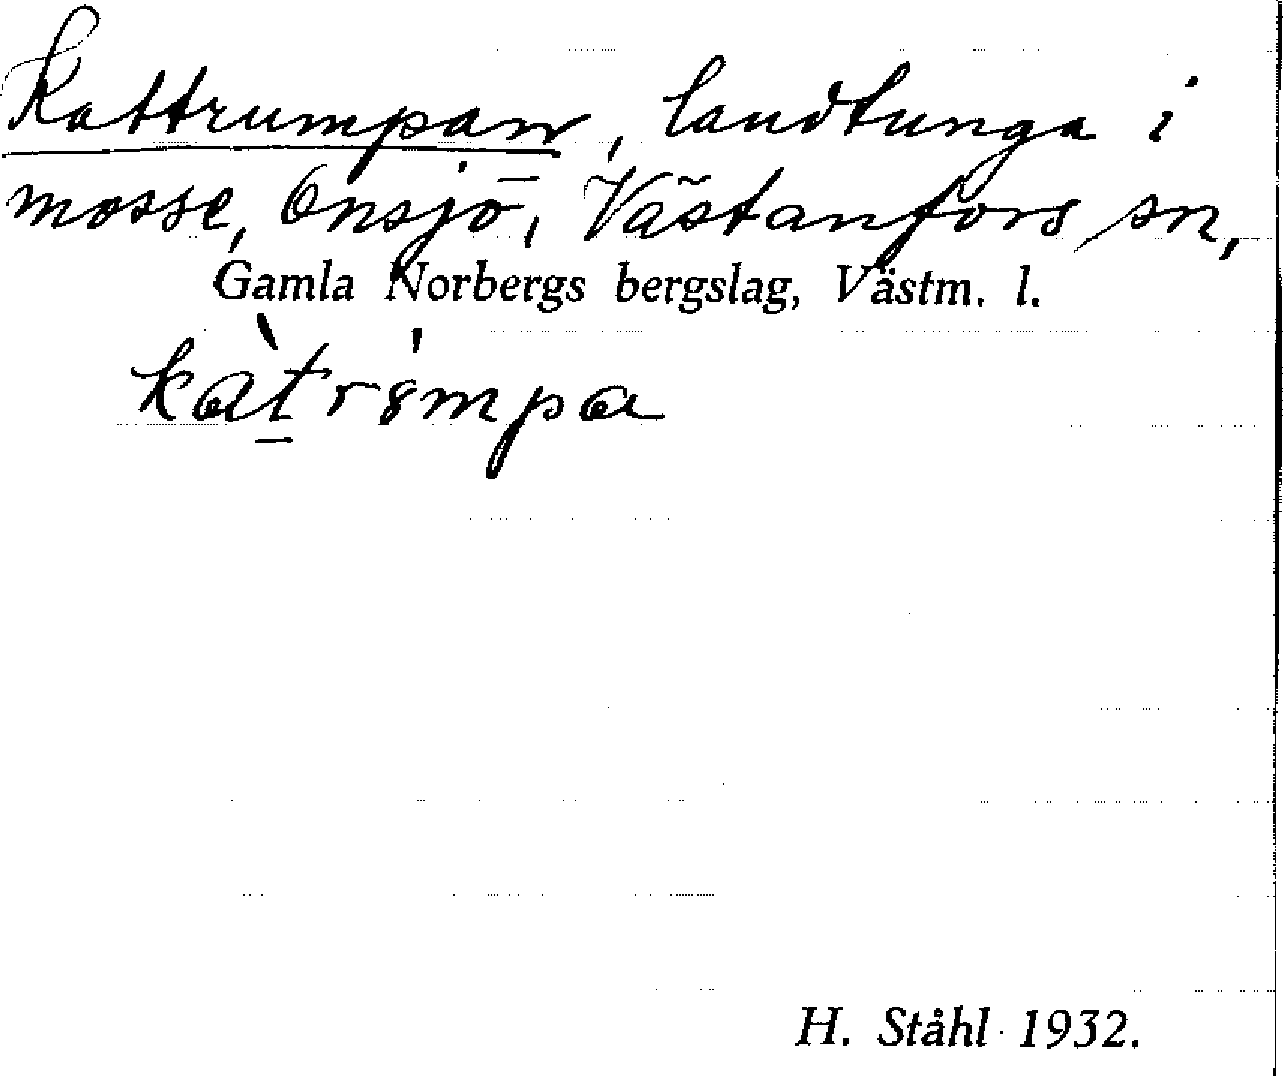 Kattrumpan, landtunga i
mosse, Onsjö, Västanfors sn,
Gamla Norbergs bergslag, Västm. l.
H. Ståhl 1932.